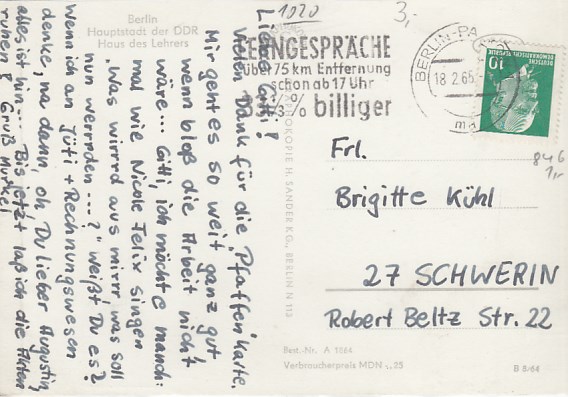 Berlin
Hauptstadt der DDR
Haus des Lehrers
1020
3,-
FERNGESPRÄCHE
über 75 km Entfernung
schon ab 17 Uhr
33 1/3 % billiger
BERLIN-PA
18 2.65
10
Liebe Gitti!
Vielen Dank für die "Pfaffen"karte.
Mir geht es so weit ganz gut
wenn bloß die Arbeit nicht
wäre... Gitti, ich möchte manch-
mal wie Nicole Felix singen
"Was wirrrd aus mirrr, was soll
nur werrrden ...?" Weißt Du es?
Wenn ich an Jüti + Rechnungswesen
denke, na dann, oh, Du lieber Augustin,
alles ist hin... Bis jetzt laß ich die Akten
ruhen! Gruß Murkel
H. SANDER KG., BERLIN N 113
Frl.
Brigitte Kühl
27 SCHWERIN
Robert Beltz Str. 22
846
1,-
Best.-Nr. A 1264
Verbraucherpreis MDN -,25
B 3/64